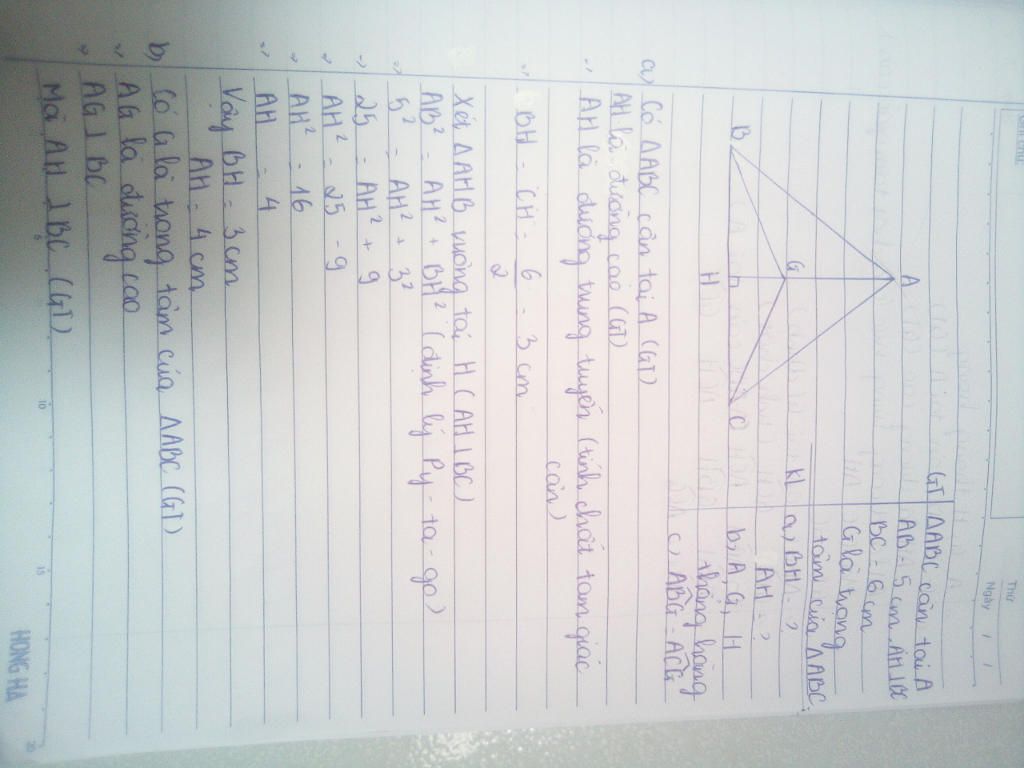 Thứ
Ngày / /
GT ΔABC cân tại A
AB = 5 cm, AH ⊥ BC
BC = 6 cm
G là trong
tâm của ΔABC
Kl a, BH = ?
AH = ?
b, A, G, H
thẳng hàng
c, ABG = ACG
A
G
B
C
H
a) Có ΔABC cân tại A (GT)
AH là đường cao (GT)
=> AH là đường trung tuyến (tính chất tam giác
cân)
=> BH = CH = 6/2 = 3 cm
Xét ΔAHB vuông tại H (AH ⊥ BC)
AB² = AH² + BH² (định lý Py-ta-go)
=> 5² = AH² + 3²
=> 25 = AH² + 9
=> AH² = 25 - 9
=> AH² = 16
=> AH = 4
Vậy BH = 3 cm
AH = 4 cm
b) Có G là trong tâm của ΔABC (GT)
=> AG là đường cao
=> AG ⊥ BC
Mà AH ⊥ BC (GT)
5 10 15 20
HONG HA